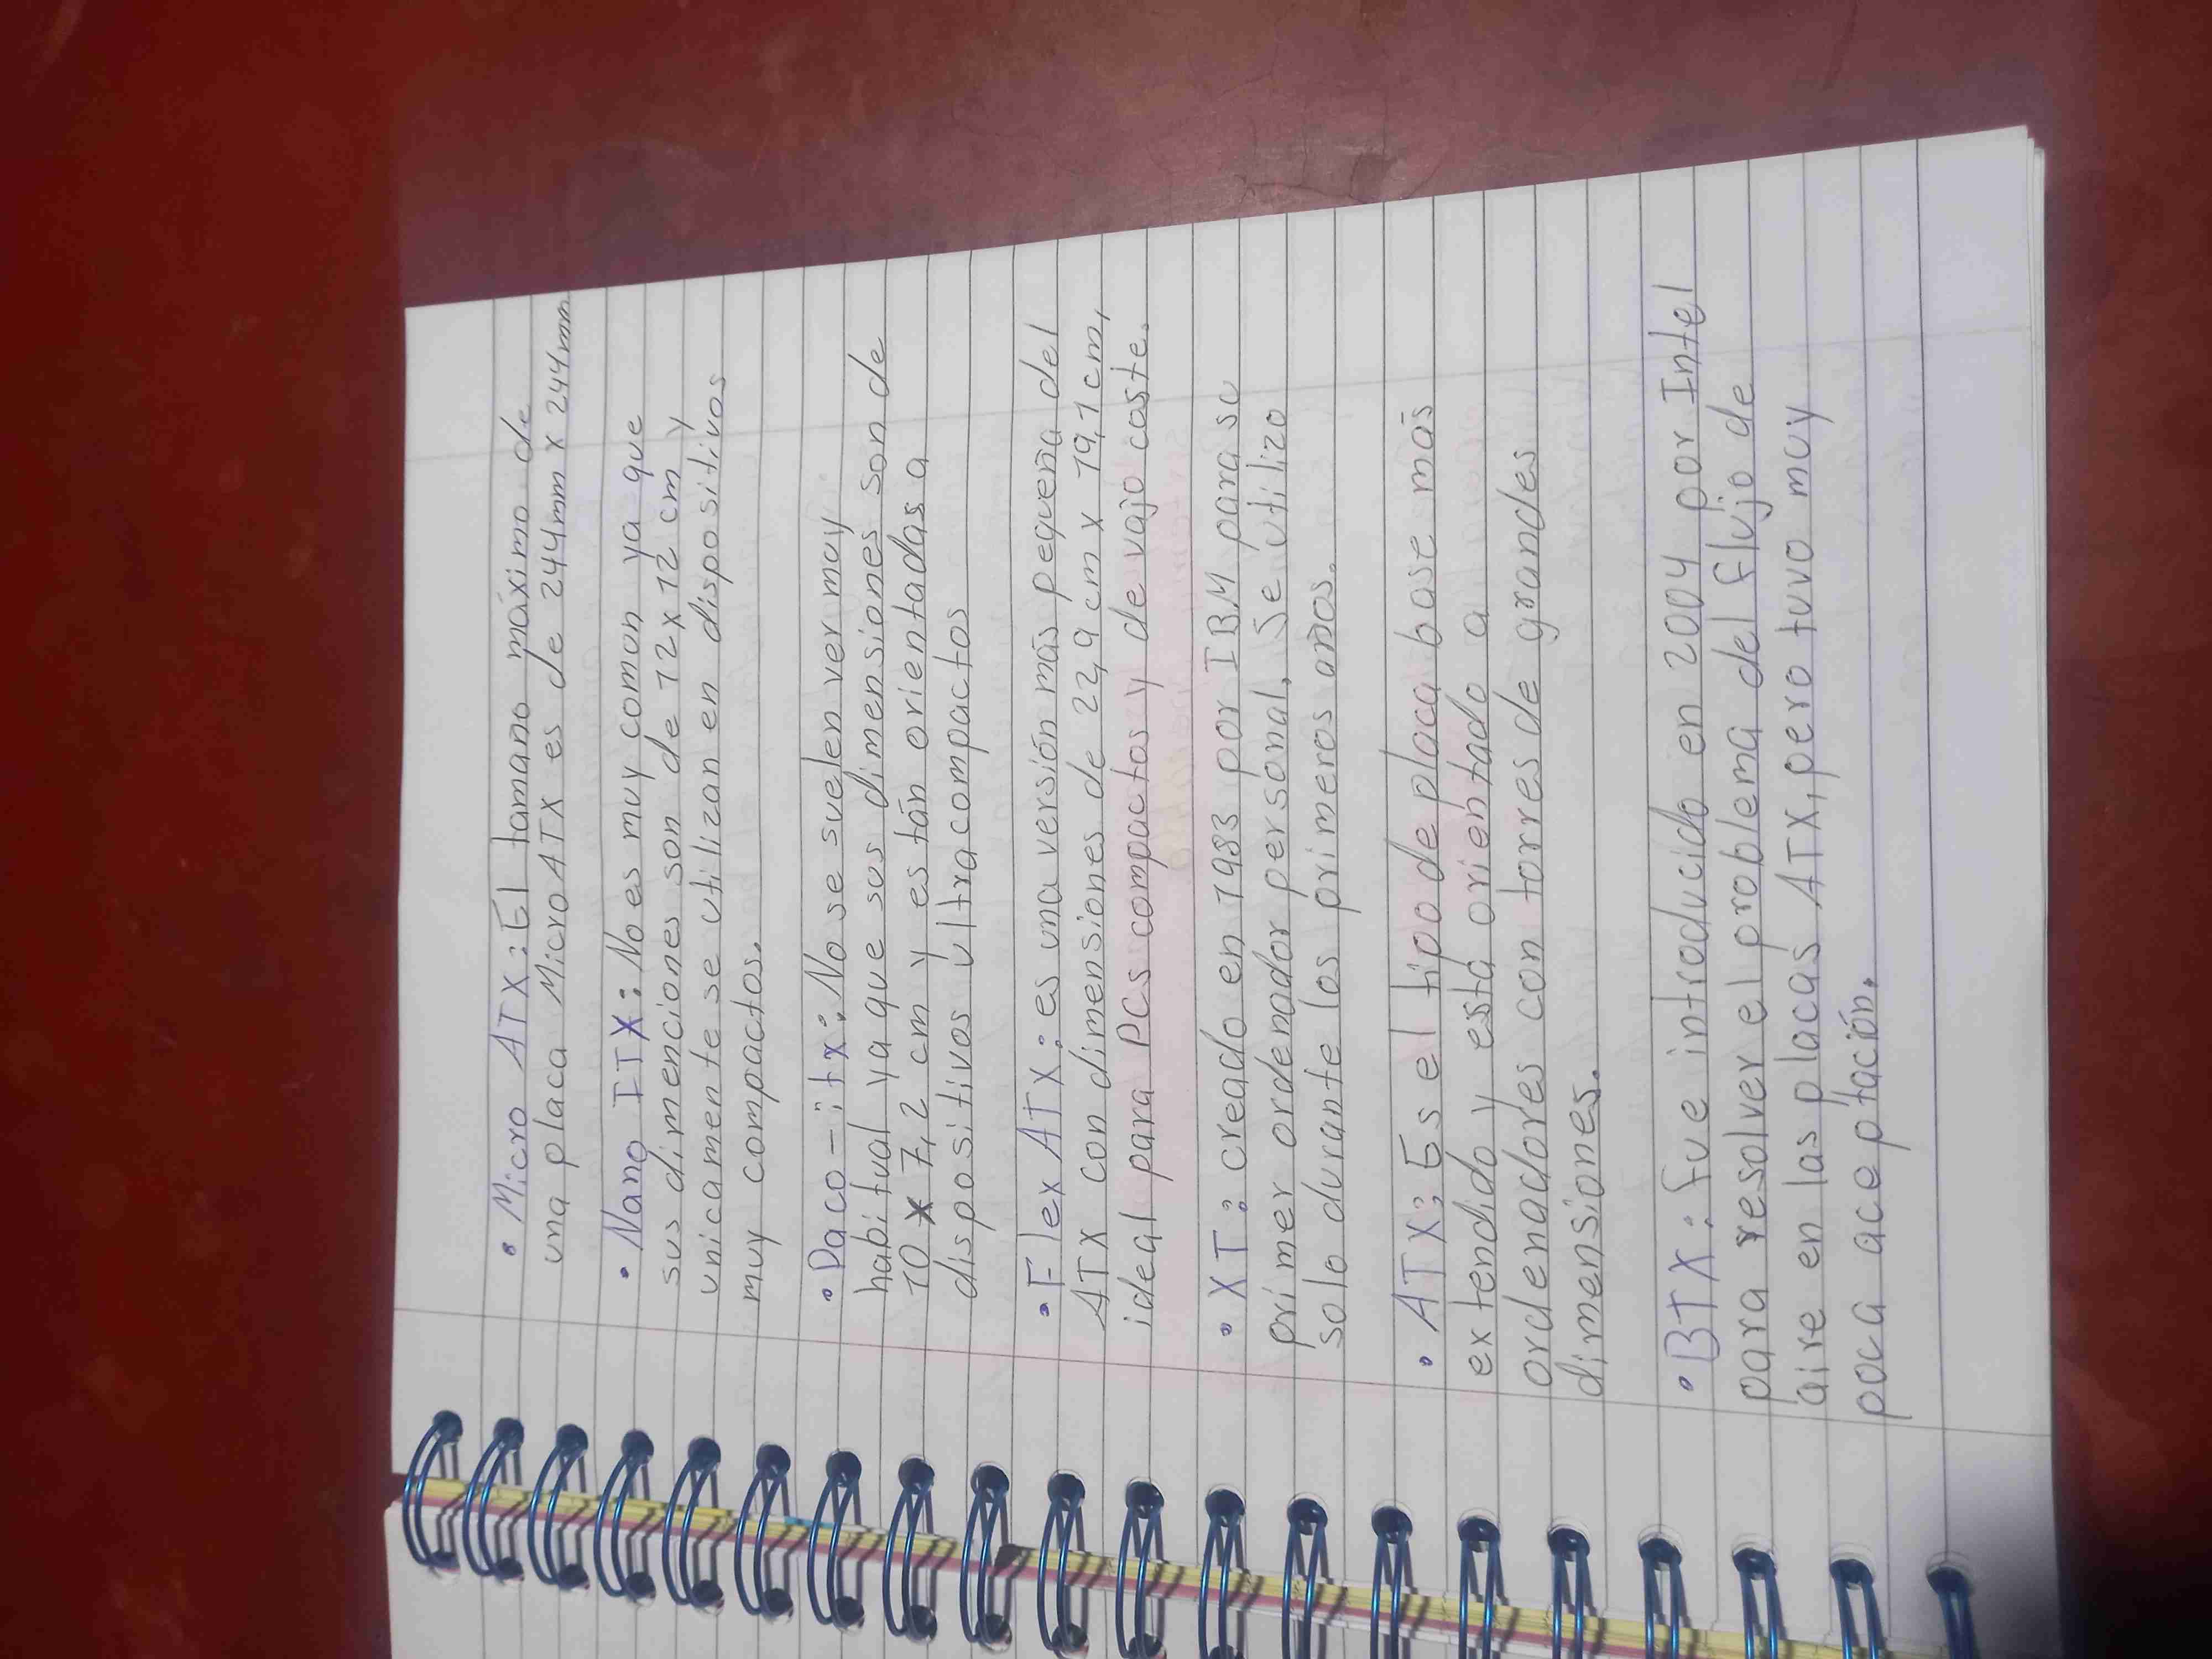 • Micro ATX: El tamano máximo de
una placa Micro ATX es de 244mm x 244mm
• Nano ITX: No es muy comon ya que
sus dimenciones son de 12x12 cm y
unicamente se utilizan en dispositivos
muy compactos.
• Paco-itx: No se suelen ver muy
habitual ya que sus dimensiones son de
10 x 7,2 cm y están orientadas a
dispositivos ultracompactos
• Flex ATX: es una versión más pequeña del
ATX con dimensiones de 22,9 cm x 19,1 cm,
ideal para PCs compactos y de vajo coste.
• XT: creado en 1983 por IBM para su
primer ordenador personal, Se utilizo
solo durante los primeros años.
• ATX: Es el tipo de placa base más
extendido y está orientado a
ordenadores con torres de grandes
dimensiones.
• BTX: fue introducido en 2004 por Intel
para resolver el problema del flujo de
aire en las placas ATX, pero tuvo muy
poca aceptación.